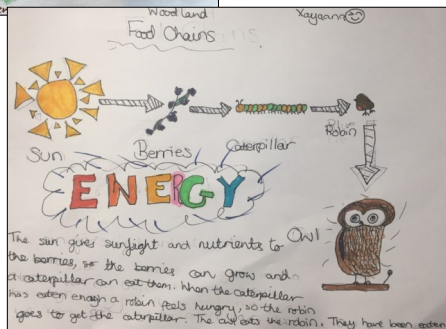 Woodland
Xayaann
Food Chains
Sun
Berries
Caterpillar
Robin
ENERGY
Owl
The sun gives sunlight and nutrients to
the berries, so the berries can grow and
a caterpillar can eat them. When the caterpillar
has eaten enough a robin feels hungry, so the robin
goes to get the caterpillar. The owl eats the robin. They have been eaten